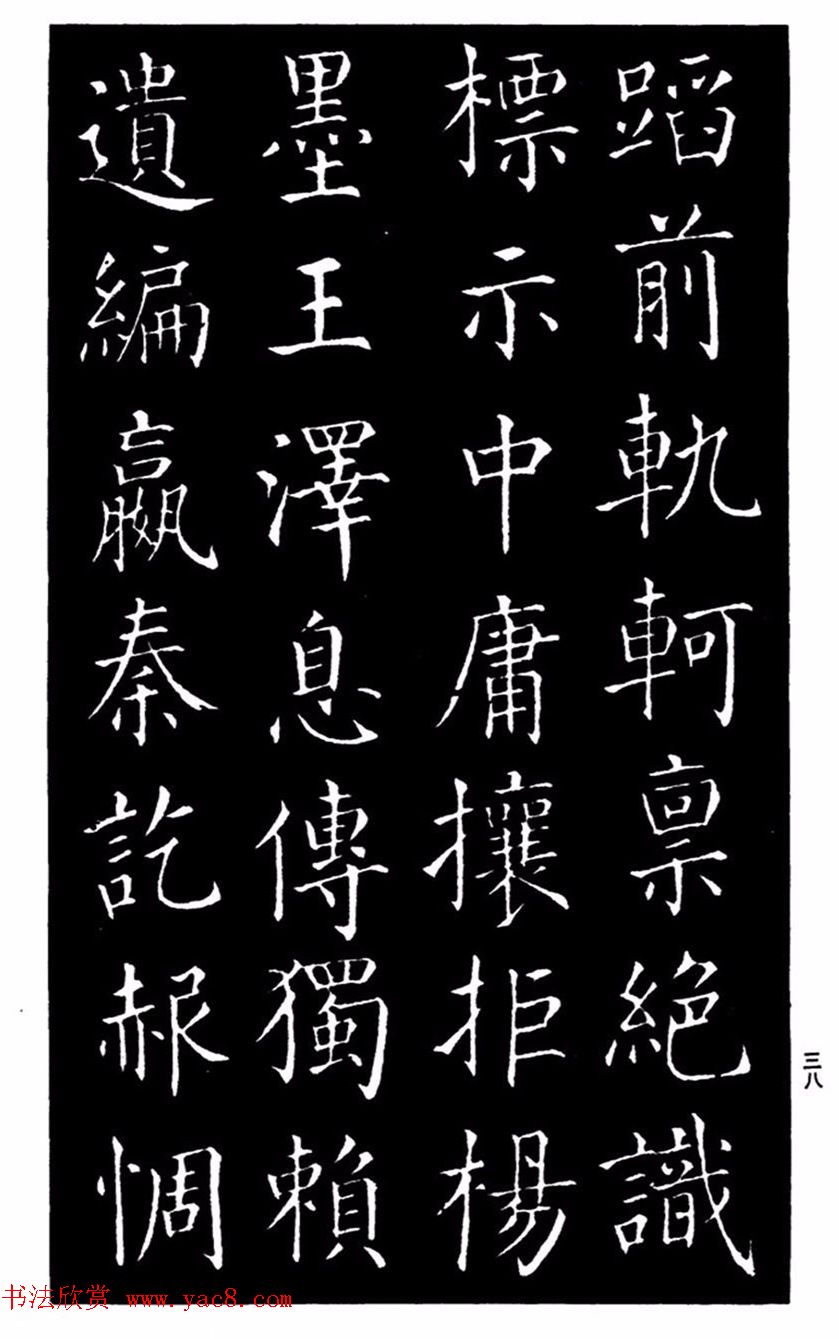 蹈前軌軻禀絕識
標示中庸攘拒楊
墨王澤息傳獨賴
遺編嬴秦訖赧惆
三八
书法欣赏 www.yac8.com